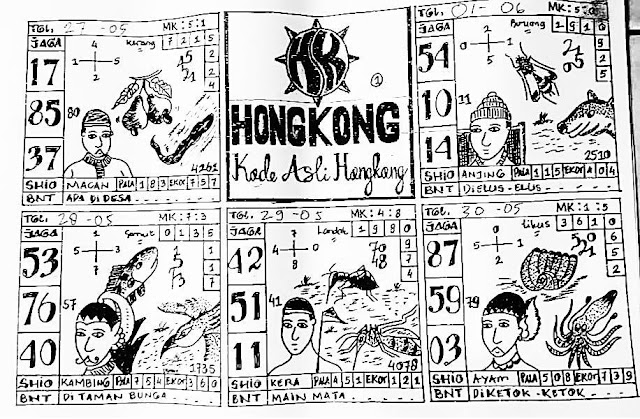 TGL. 27-05 MK:5:1
JAGA
Kerang 7 2 1 5
4
1 2
5
17
85
37
80
2
2
4
4261
SHIO MACAN PALA 1 8 3 EKOR 7 5 7
BNT APA DI DESA
HK
1
HONGKONG
Kode Asli Hongkong
TGL. 01-06 MK:5:0
JAGA
Buruang 1 9 1 0
2
0 1
5
54
10
14
31
21
05
9
2
5
2510
SHIO ANJING PALA 1 1 5 EKOR A 0 4
BNT DIELUS-ELUS
TGL. 28-05 MK:7:3
JAGA
Semut 0 1 3 5
5
1 3
7
53
76
40
57
1
7
1735
SHIO KAMBING PALA 7 5 4 EKOR 3 6 0
BNT DI TAMAN BUNGA
TGL. 29-05 MK:4:8
JAGA
Landak 1 9 8 0
7
4 0
8
42
51
11
41
70
48
9
7
4
4078
SHIO KERA PALA A 5 1 EKOR 1 2 1
BNT MAIN MATA
TGL. 30-05 MK:1:5
JAGA
tikus 3 6 1 0
0
5 1
2
87
59
03
79
6
6
5
2
SHIO AYAM PALA 5 0 8 EKOR 7 3 9
BNT DIKETOK-KETOK